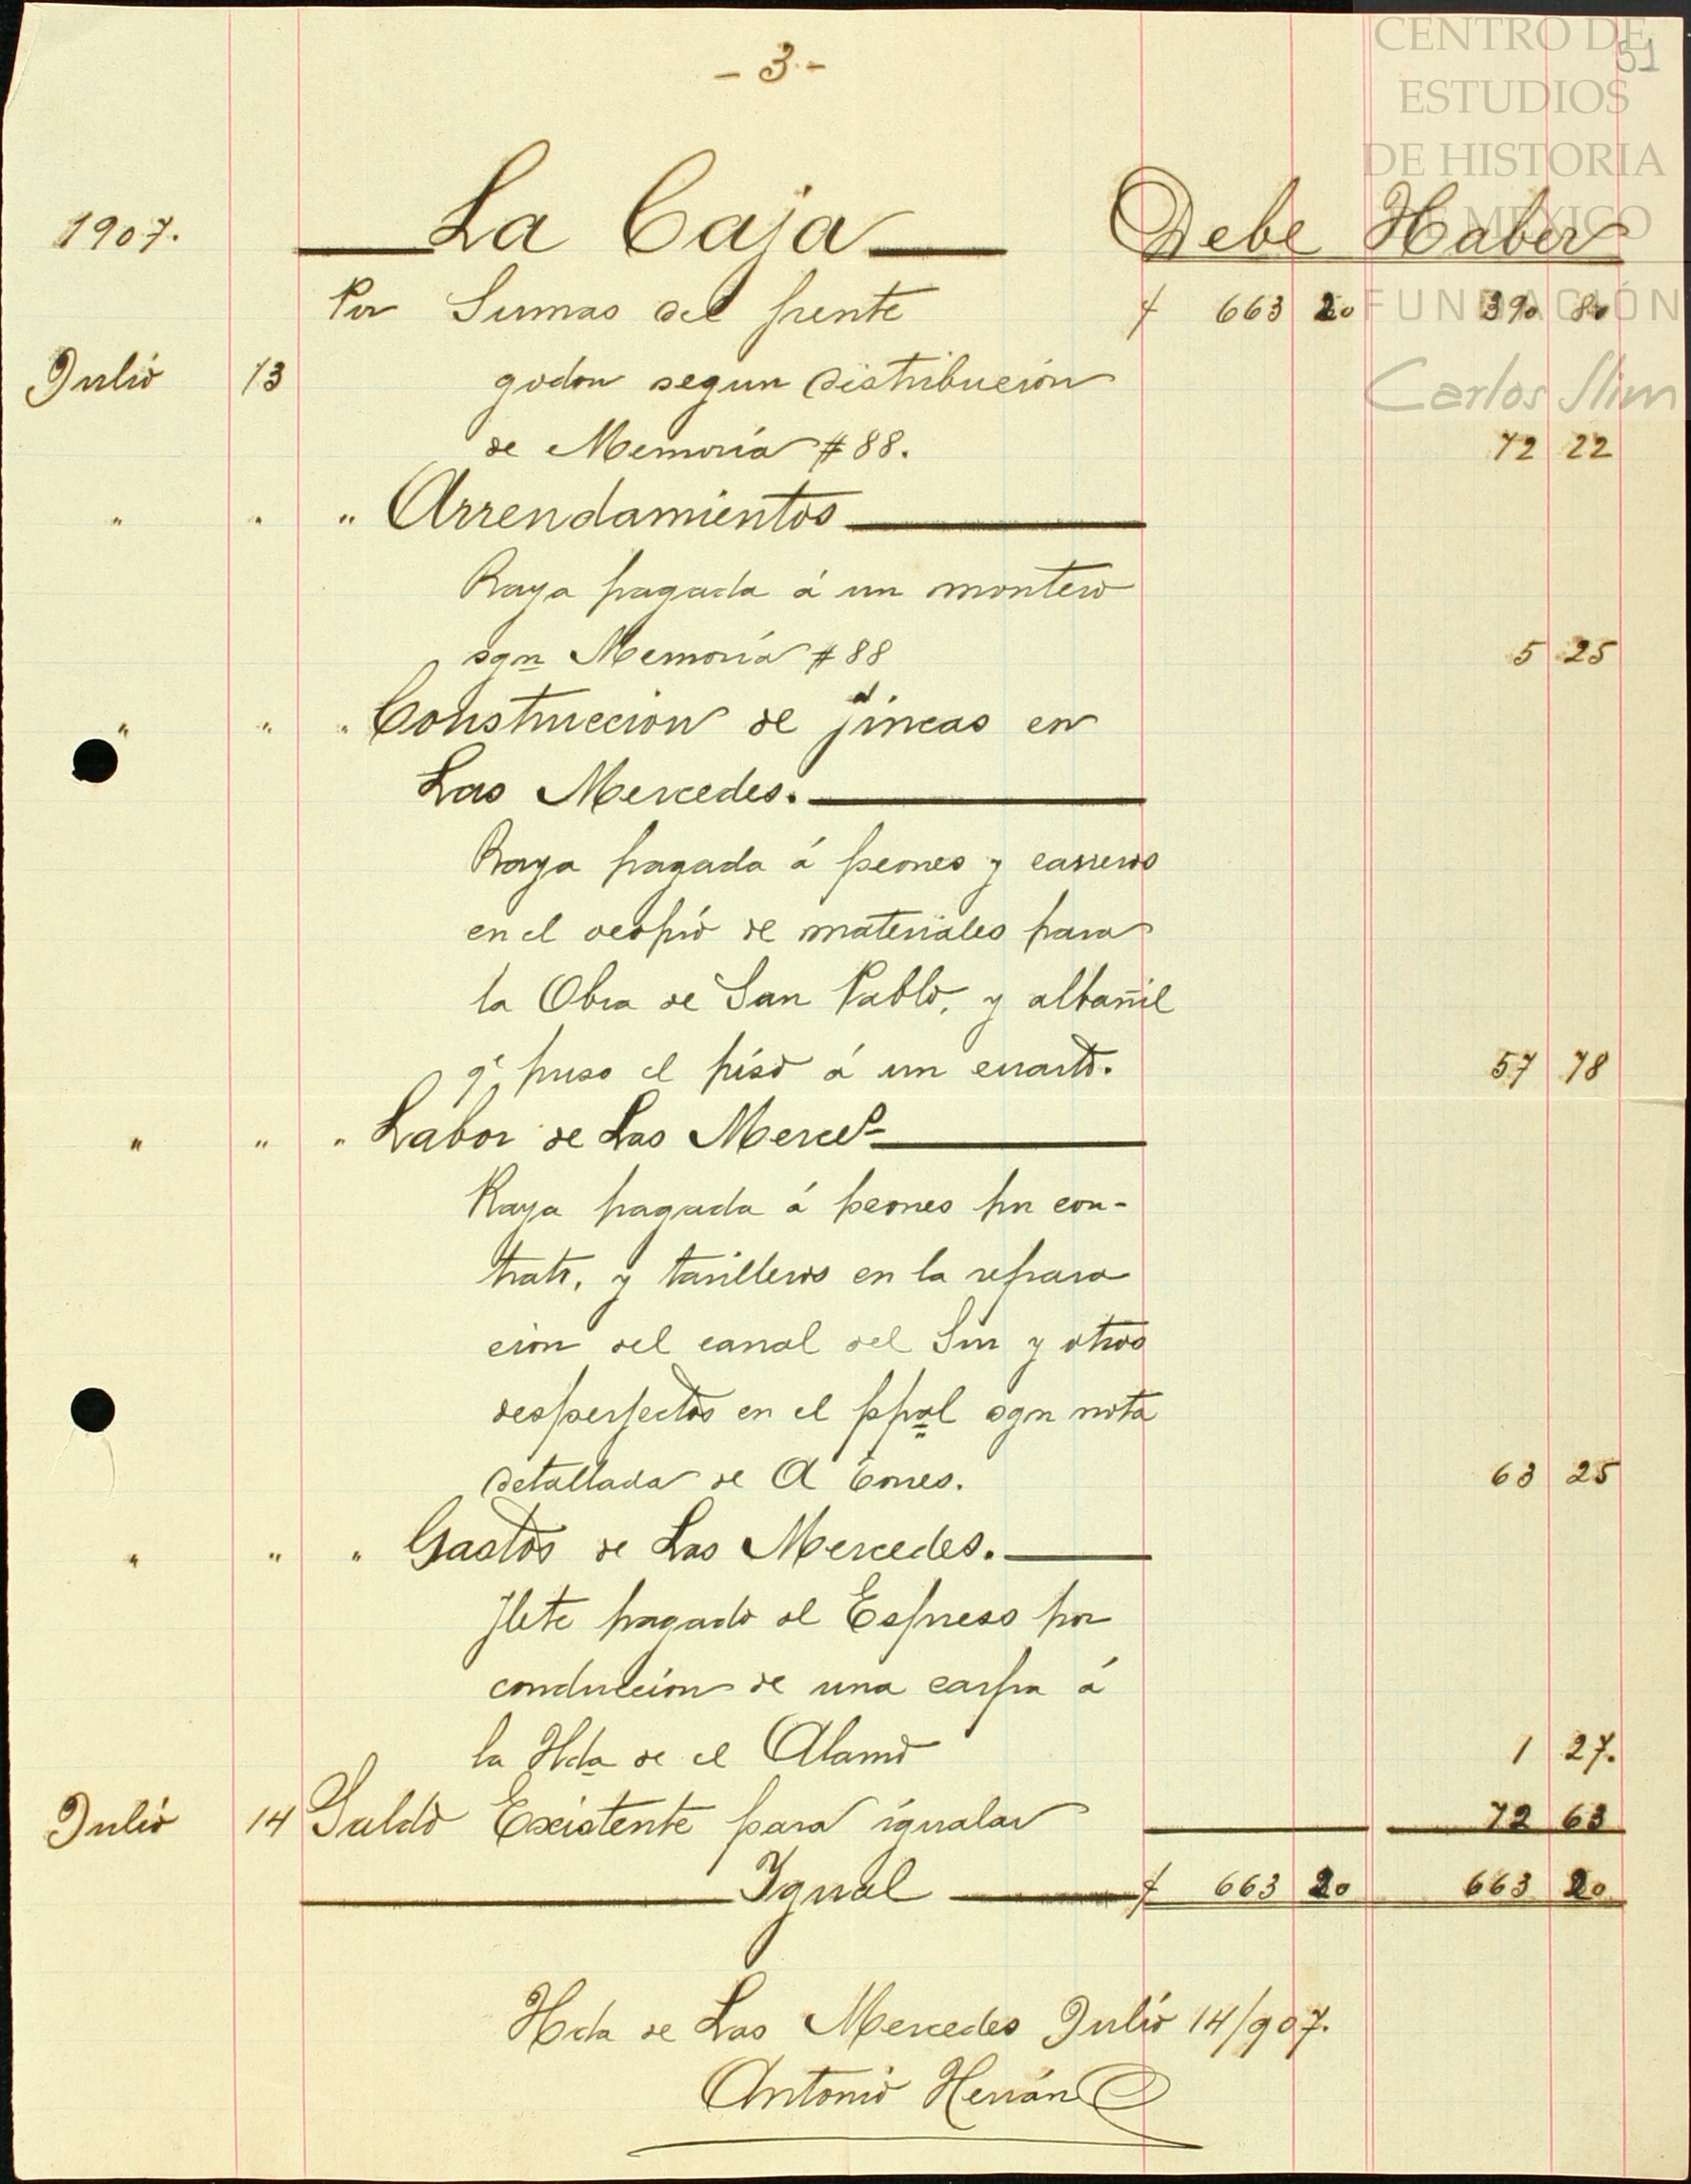 - 3 -
51
CENTRO DE
ESTUDIOS
DE HISTORIA
DE MEXICO
FUNDACIÓN
Carlos Slim
1907. La Caja Debe Haber
Por Sumas del frente $ 663 20 390 80
Julio 13 godon segun distribucion
de Memoria #88. 72 22
" " " Arrendamientos
Raya pagada á un montero
sgn Memoria #88 5 25
" " " Construccion de fincas en
Las Mercedes.
Raya pagada á peones y carreros
en el acopio de materiales para
la Obra de San Pablo, y albañil
qe puso el piso á un cuarto. 57 78
" " " Labor de Las Merces
Raya pagada á peones por con-
trato, y tarilleros en la repara
cion del canal del Sur y otros
desperfectos en el ppal sgn nota
detallada de A Torres. 63 25
" " " Gastos de Las Mercedes.
flete pagado al Espreso por
conduccion de una carpa á
la Hda de el Alamo 1 27.
Julio 14 Saldo Existente para igualar 72 63
Igual $ 663 20 663 20
Hda de Las Mercedes Julio 14/907.
Antonio Herrán